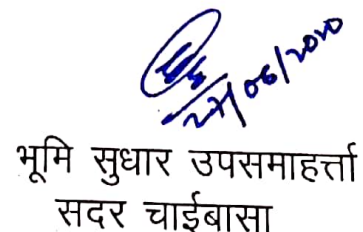 27/06/2020
भूमि सुधार उपसमाहर्त्ता
सदर चाईबासा